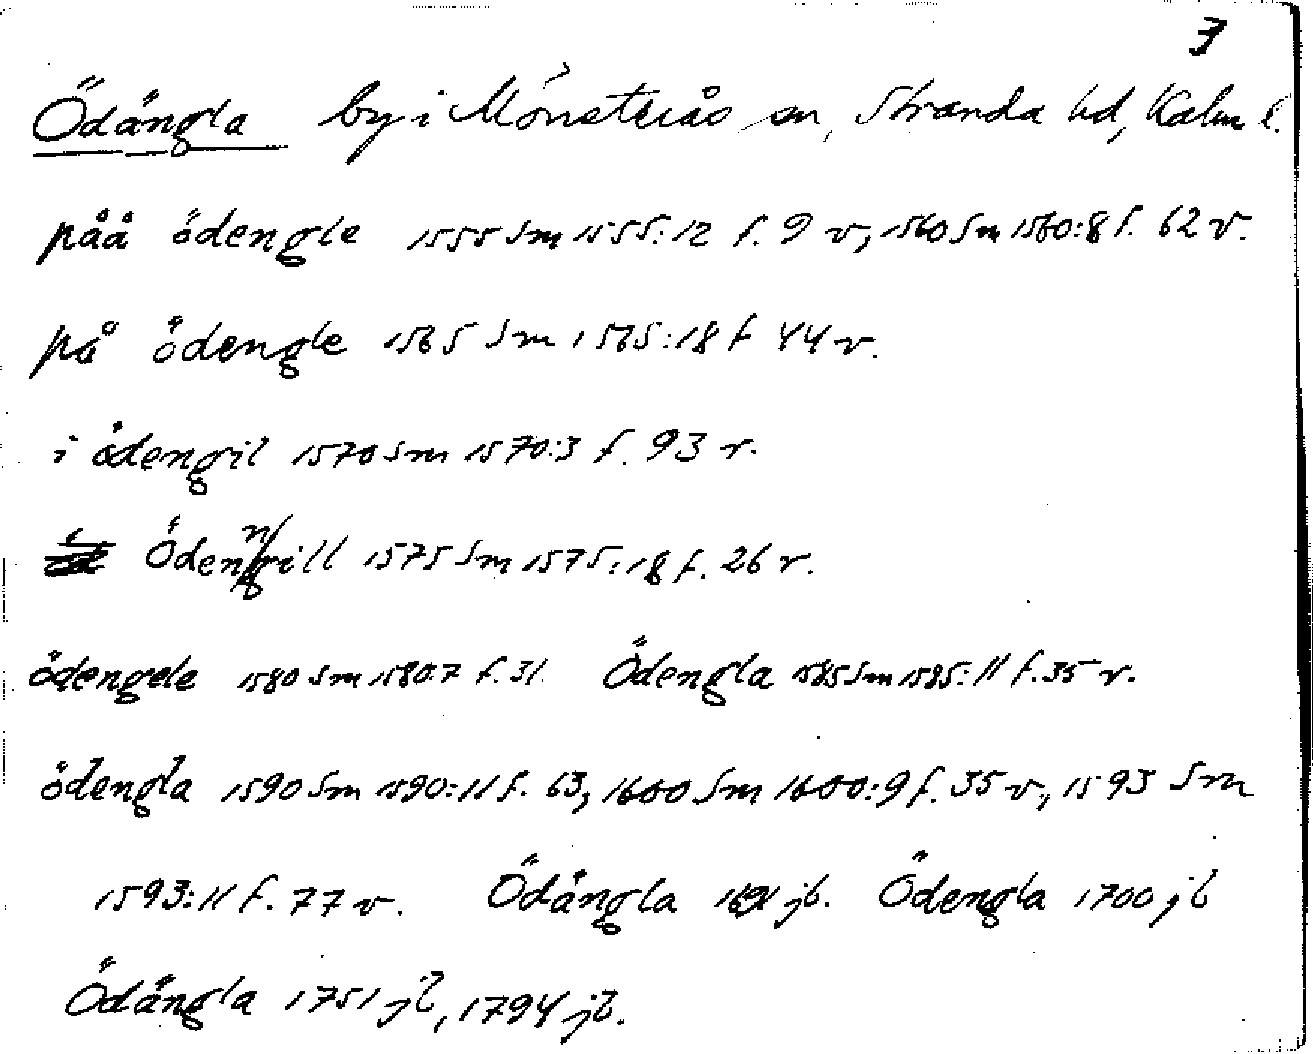 3
Ödängla by i Mönsterås sn, Stranda hd, Kalm l.
påå ödengle 1555 Sm 1555:12 f. 9 v, 1560 Sm 1560:8 f. 62 v.
på ödengle 1565 Sm 1565:18 f 44 v.
i ödengil 1570 Sm 1570:3 f. 93 r.
Ödenngill 1575 Sm 1575:18 f. 26 r.
ödengele 1580 Sm 1580:7 f. 31. Ödengla 1585 Sm 1585:11 f. 35 r.
ödengla 1590 Sm 1590:11 f. 63, 1600 Sm 1600:9 f. 35 v, 1593 Sm
1593:11 f. 77 v. Ödängla 1691 jb. Ödengla 1700 jb
Ödängla 1751 jb, 1794 jb.